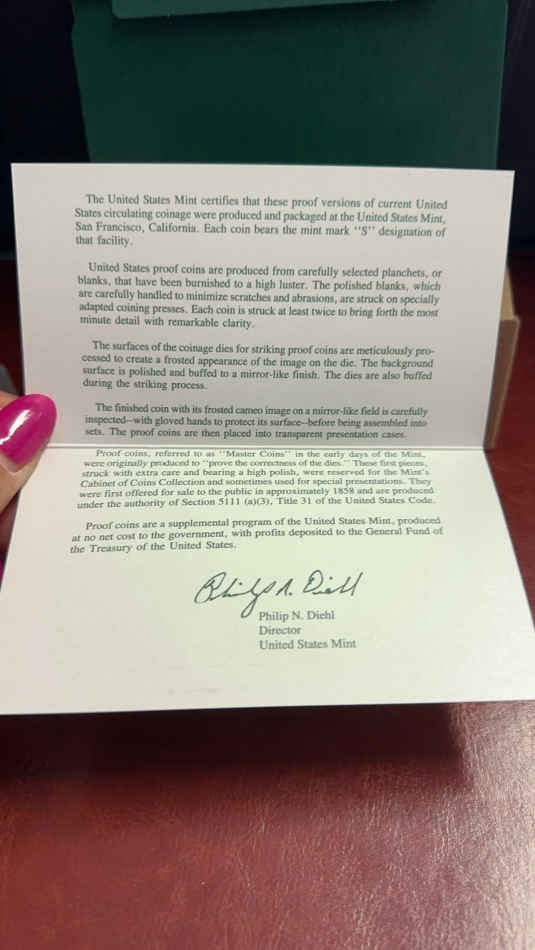 The United States Mint certifies that these proof versions of current United
States circulating coinage were produced and packaged at the United States Mint,
San Francisco, California. Each coin bears the mint mark ‘‘S’’ designation of
that facility.
United States proof coins are produced from carefully selected planchets, or
blanks, that have been burnished to a high luster. The polished blanks, which
are carefully handled to minimize scratches and abrasions, are struck on specially
adapted coining presses. Each coin is struck at least twice to bring forth the most
minute detail with remarkable clarity.
The surfaces of the coinage dies for striking proof coins are meticulously pro-
cessed to create a frosted appearance of the image on the die. The background
surface is polished and buffed to a mirror-like finish. The dies are also buffed
during the striking process.
The finished coin with its frosted cameo image on a mirror-like field is carefully
inspected--with gloved hands to protect its surface--before being assembled into
sets. The proof coins are then placed into transparent presentation cases.
Proof coins, referred to as ‘‘Master Coins’’ in the early days of the Mint,
were originally produced to ‘‘prove the correctness of the dies.’’ These first pieces,
struck with extra care and bearing a high polish, were reserved for the Mint's
Cabinet of Coins Collection and sometimes used for special presentations. They
were first offered for sale to the public in approximately 1858 and are produced
under the authority of Section 5111 (a)(3), Title 31 of the United States Code.
Proof coins are a supplemental program of the United States Mint, produced
at no net cost to the government, with profits deposited to the General Fund of
the Treasury of the United States.
Philip N. Diehl
Philip N. Diehl
Director
United States Mint